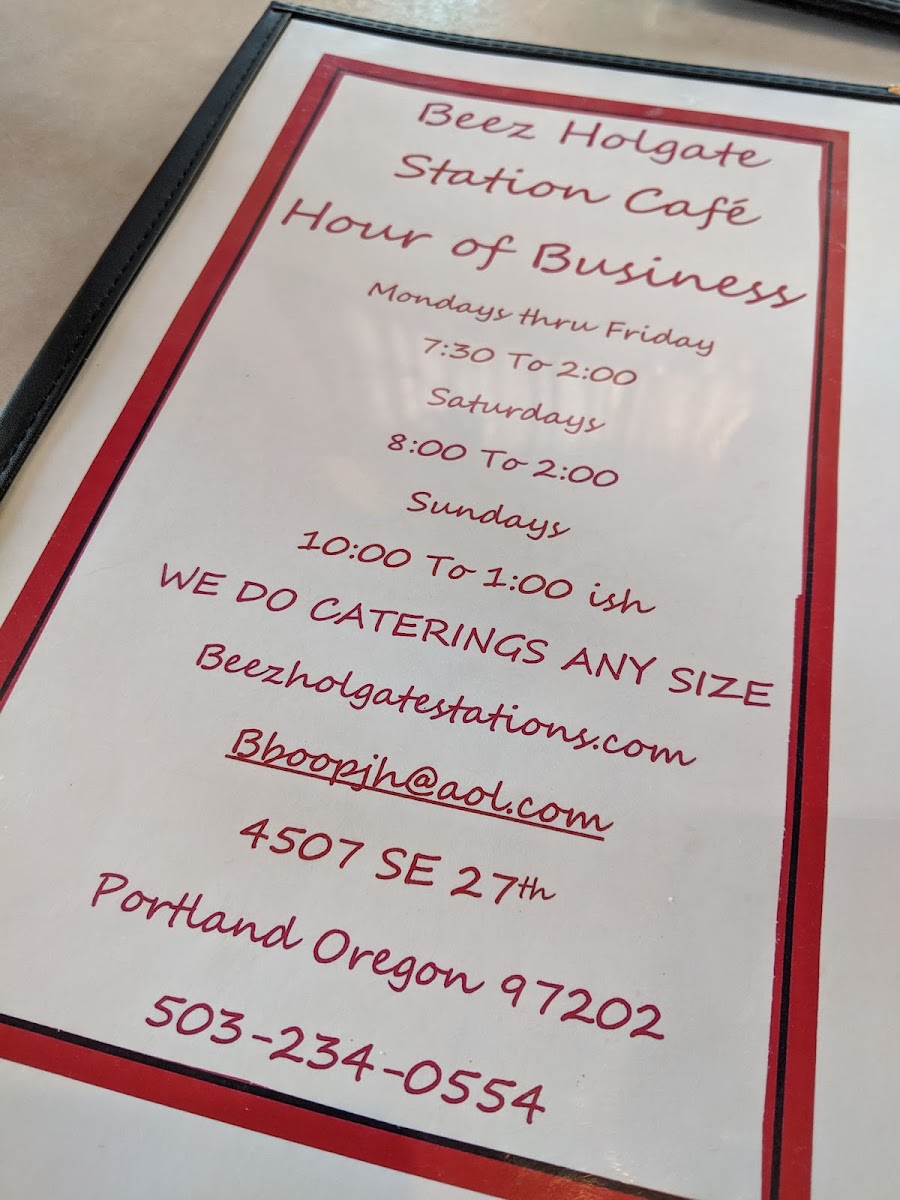 Beez Holgate
Station Café
Hour of Business
Mondays thru Friday
7:30 To 2:00
Saturdays
8:00 To 2:00
Sundays
10:00 To 1:00 ish
WE DO CATERINGS ANY SIZE
Beezholgatestations.com
Bboopjh@aol.com
4507 SE 27th
Portland Oregon 97202
503-234-0554